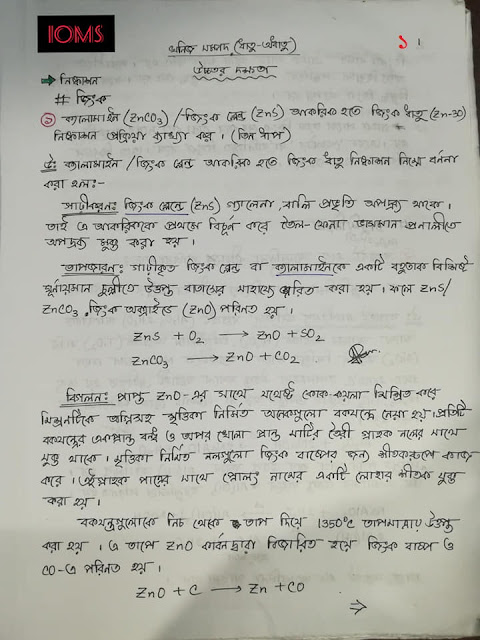 IOMS
খনিজ সম্পদ (ধাতু-অধাতু)
১।
উচ্চতর দক্ষতা
নিষ্কাশন
# জিংক
১ ক্যালামাইন (ZnCO3) / জিংক ব্লেন্ড (ZnS) আকরিক হতে জিংক ধাতু (Zn-30)
নিষ্কাশন প্রক্রিয়া ব্যাখ্যা কর। (তিন ধাপ)
উঃ ক্যালামাইন / জিংক ব্লেন্ড আকরিক হতে জিংক ধাতু নিষ্কাশন নিম্নে বর্ননা
করা হলঃ-
গাঢ়ীকরণঃ জিংক ব্লেন্ডে (ZnS) গ্যালেনা, বালি প্রভৃতি অপদ্রব্য থাকে।
তাই এ আকরিককে প্রথমে বিচূর্ন করে তৈল-ফেনা ভাসমান প্রনালীতে
অপদ্রব্য মুক্ত করা হয়।
তাপজারনঃ গাঢ়ীকৃত জিংক ব্লেন্ড বা ক্যালামাইনকে একটি বহুতাক বিশিষ্ট
ঘূর্নায়মান চুল্লীতে উত্তপ্ত বাতাসের সাহায্যে জারিত করা হয়। ফলে ZnS/
ZnCO3 জিংক অক্সাইডে (ZnO) পরিনত হয়।
ZnS + O2 → ZnO + SO2
ZnCO3 → ZnO + CO2
বিগলনঃ প্রাপ্ত ZnO-এর সাথে যথেষ্ট কোক-কয়লা মিশ্রিত করে
মিশ্রনটিকে অগ্নিসহ মৃত্তিকা নির্মিত অনেকগুলো বকযন্ত্রে নেয়া হয়। প্রতিটি
বকযন্ত্রের একপ্রান্ত বন্ধ ও অপর খোলা প্রান্ত মাটির তৈরী গ্রাহক নলের সাথে
যুক্ত থাকে। মৃত্তিকা নির্মিত নলগুলো জিংক বাষ্পের জন্য শীতকরূপে কাজ
করে। এইগ্রাহক পাত্রের সাথে প্রোলং নামের একটি লোহার শীতক যুক্ত
করা হয়।
বকযন্ত্রগুলোকে নিচ থেকে তাপ দিয়ে 1350°C তাপমাত্রায় উত্তপ্ত
করা হয়। এ তাপে ZnO কার্বন দ্বারা বিজারিত হয়ে জিংক বাষ্প ও
CO-এ পরিনত হয়।
ZnO + C → Zn + CO
⇒